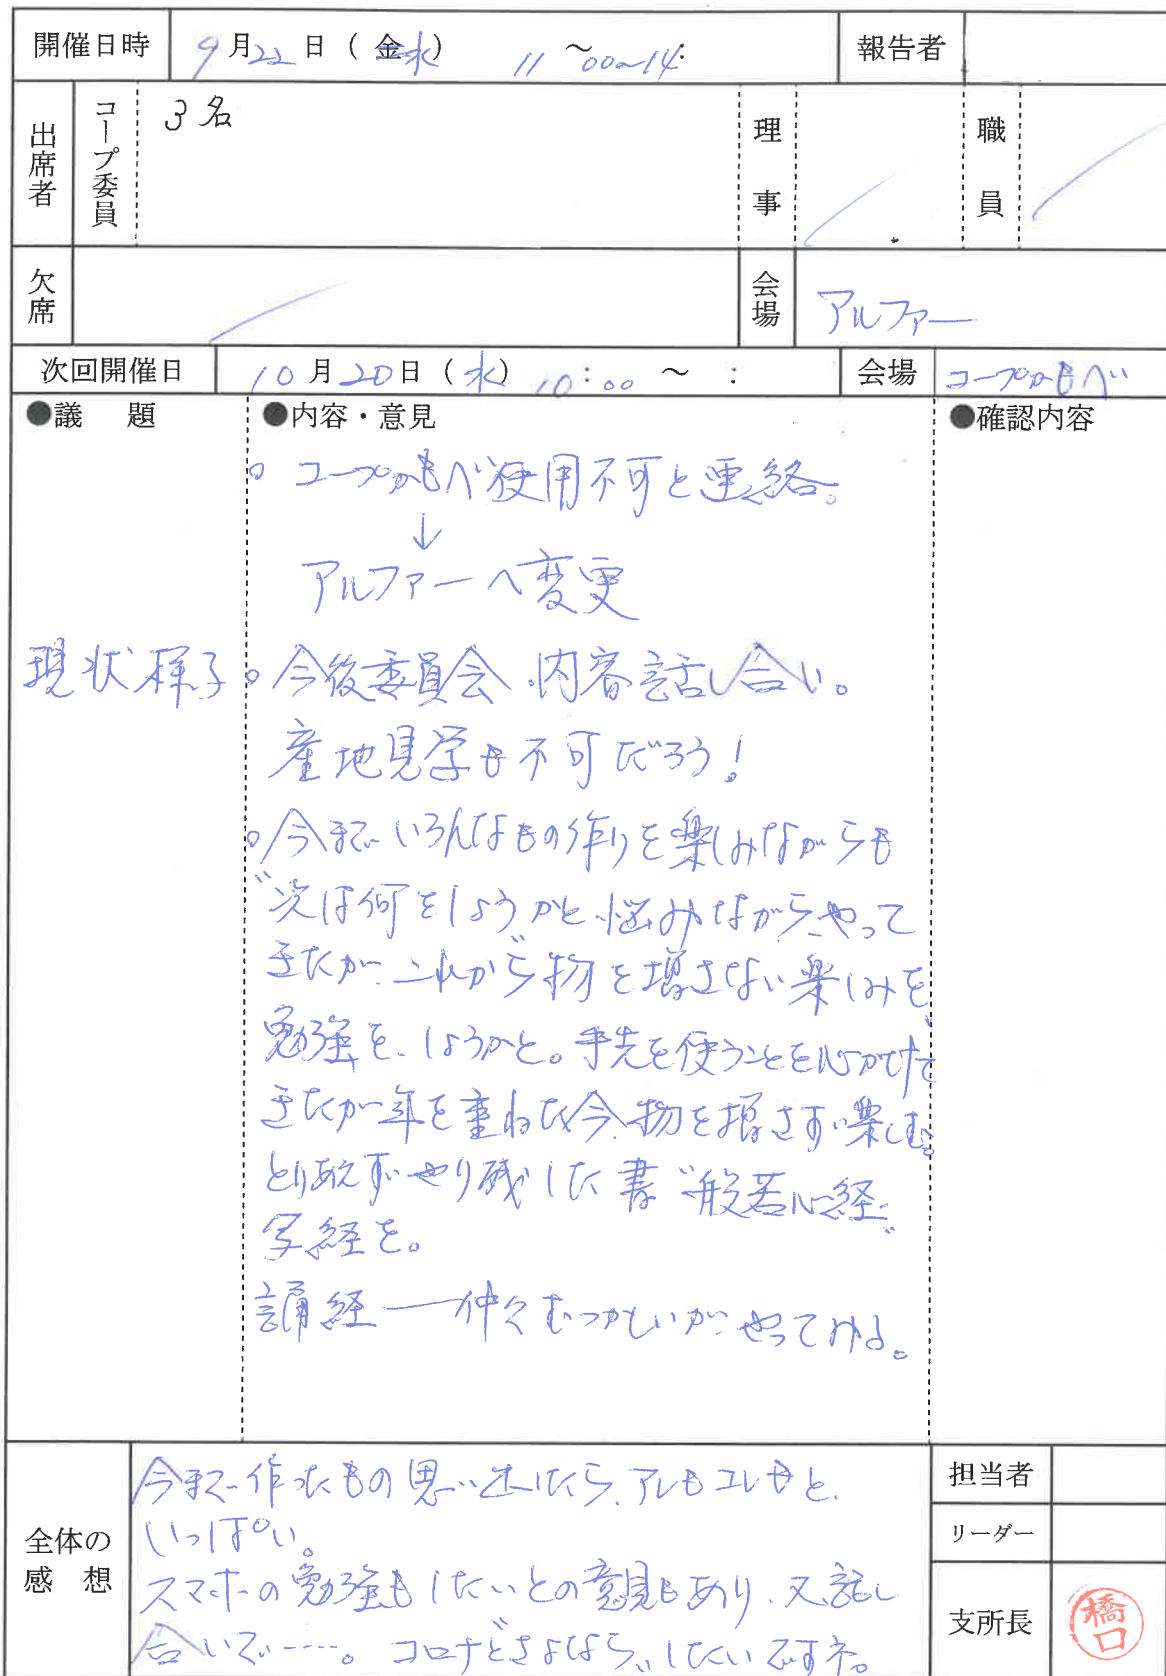 開催日時 9月22日(金水) 11~00~14: 報告者
出席者 コープ委員 3名 理事 職員
欠席 会場 アルファー
次回開催日 10月20日(水) 10:00 ~ : 会場 コープかもべ
●議 題 ●内容・意見 ●確認内容
。コープかもべ使用不可と連絡。
↓
アルファーへ変更
現状様子 。今後委員会、内容話し合い。
産地見学も不可だろう!
。今までいろんなもの作りを楽しみながらも
〝次は何をしようかと、悩みながら、やって
きたが、これから〝物を増さない楽しみを、
勉強を、しようかと。手先を使うことを心がけて
きたが年を重ねた今、物を増さず楽しむ。
とりあえずやり残した書〝般若心経〟
写経を。
誦経―仲々むつかしいが、やってみる。
全体の感想
今まで作ったもの思い出したら、アレもコレもと、
いっぱい。
スマホの勉強もしたいとの意見もあり、又、話し
合いで……。コロナ〝さよなら〟したいですネ。
担当者
リーダー
支所長 橋口